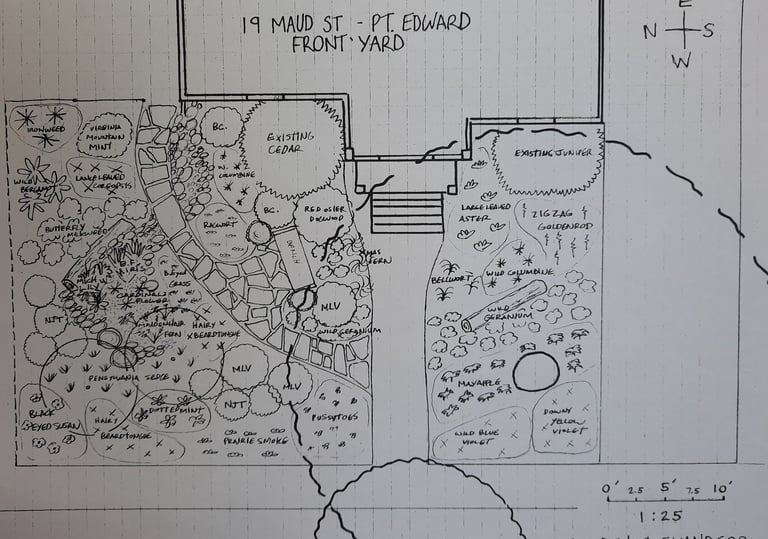 19 MAUD ST - PT. EDWARD
FRONT YARD
E
N S
W
IRONWEED
VIRGINIA
MOUNTAIN
MINT
BC.
EXISTING
CEDAR
EXISTING JUNIPER
WILD
BERGAMOT
LANCE LEAVED
COREOPSIS
N.
COLUMBINE
BUTTERFLY
MILKWEED
RAGWORT
BC.
RED OSIER
DOGWOOD
LARGE LEAVED
ASTER
ZIG ZAG
GOLDENROD
BENCH
XMAS
FERN
IRIS
B. EYED
GRASS
CARDINAL
FLOWER
BELLWORT
WILD COLUMBINE
NJT
MAIDENHAIR
FERN
HAIRY
BEARDTONGUE
MLV
WILD GERANIUM
WILD
GERANIUM
PENSYLVANIA SEDGE
MLV
MLV
MAYAPPLE
BLACK
EYED SUSAN
HAIRY
BEARDTONGUE
DOTTED MINT
NJT
PRAIRIE SMOKE
PUSSYTOES
WILD BLUE
VIOLET
DOWNY
YELLOW
VIOLET
0' 2.5 5' 7.5 10'
1:25